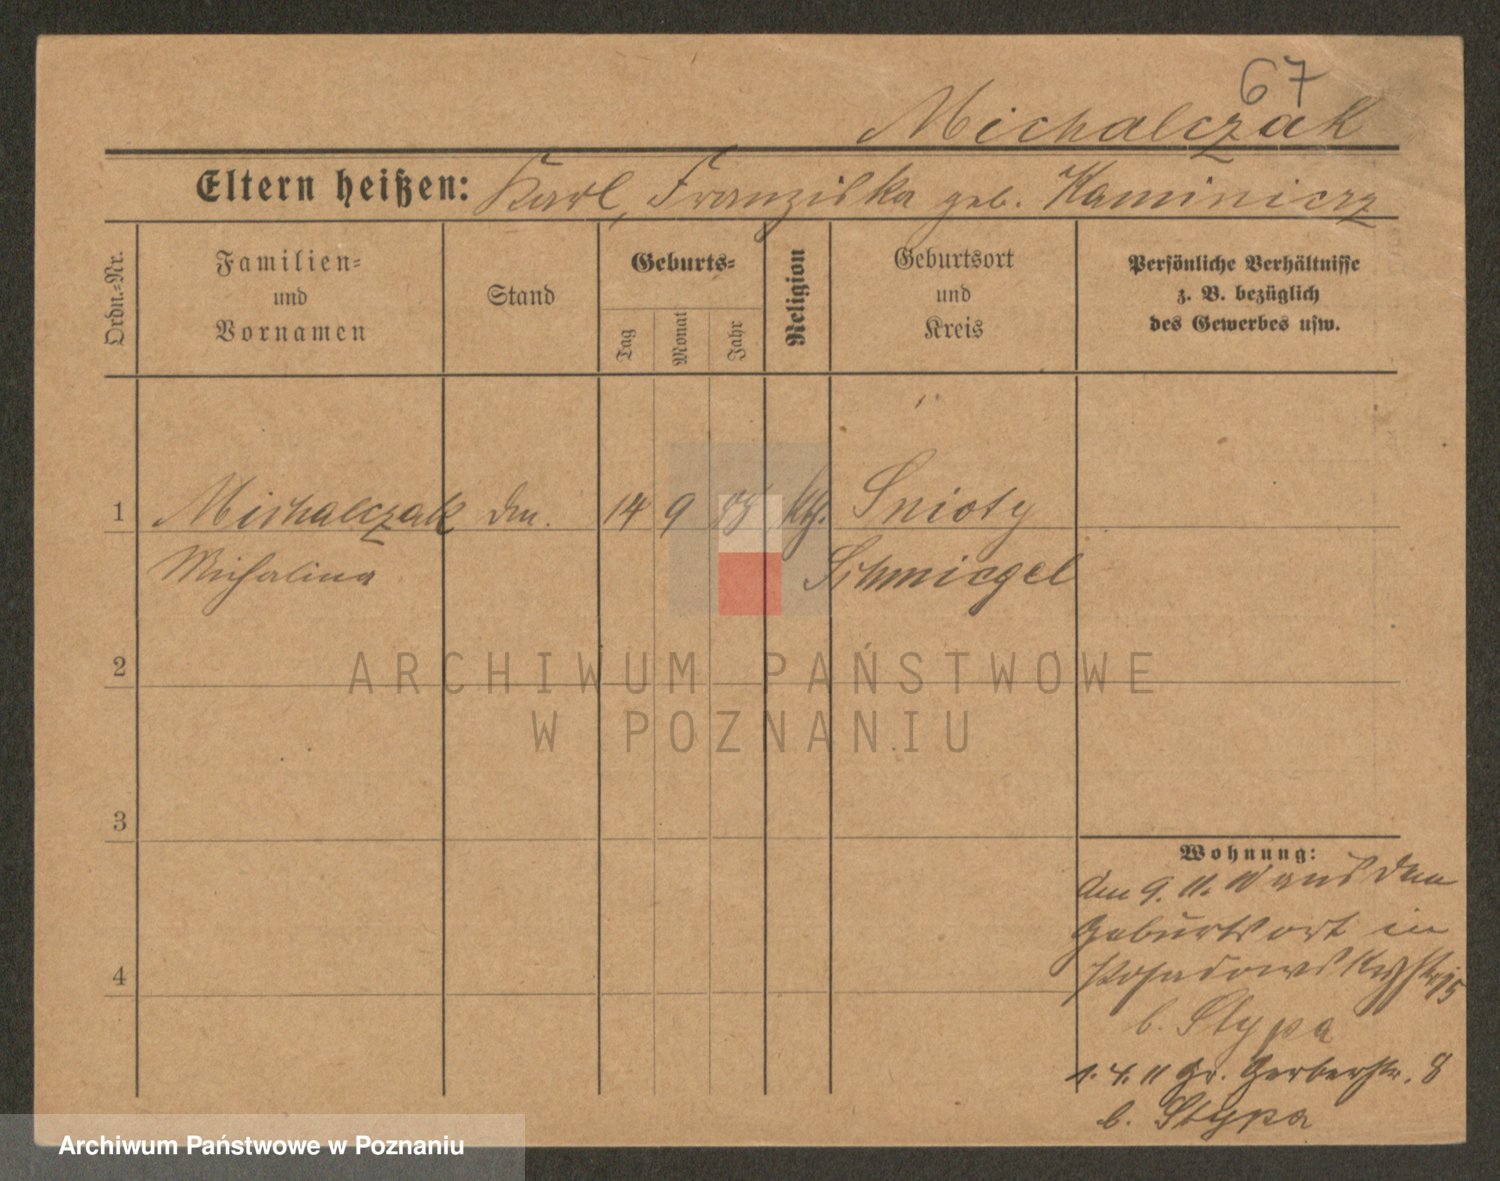 67
Michalczak
Eltern heißen: Karl, Franziska geb. Kaminicrz
Ordn.-Nr.
Familien-
und
Vornamen
Stand
Geburts-
Tag
Monat
Jahr
Religion
Geburtsort
und
Kreis
Persönliche Verhältnisse
z. B. bezüglich
des Gewerbes usw.
1 Michalczak 14 9 Snioty
Michalina Schmiegel
2
3
4
Wohnung:
den 9. 11. 10 aus dem
Geburtsort in
b. Stypa
1. 4. 11 Gr. Gerberstr. 8
b. Stypa
ARCHIWUM PAŃSTWOWE
W POZNANIU
Archiwum Państwowe w Poznaniu